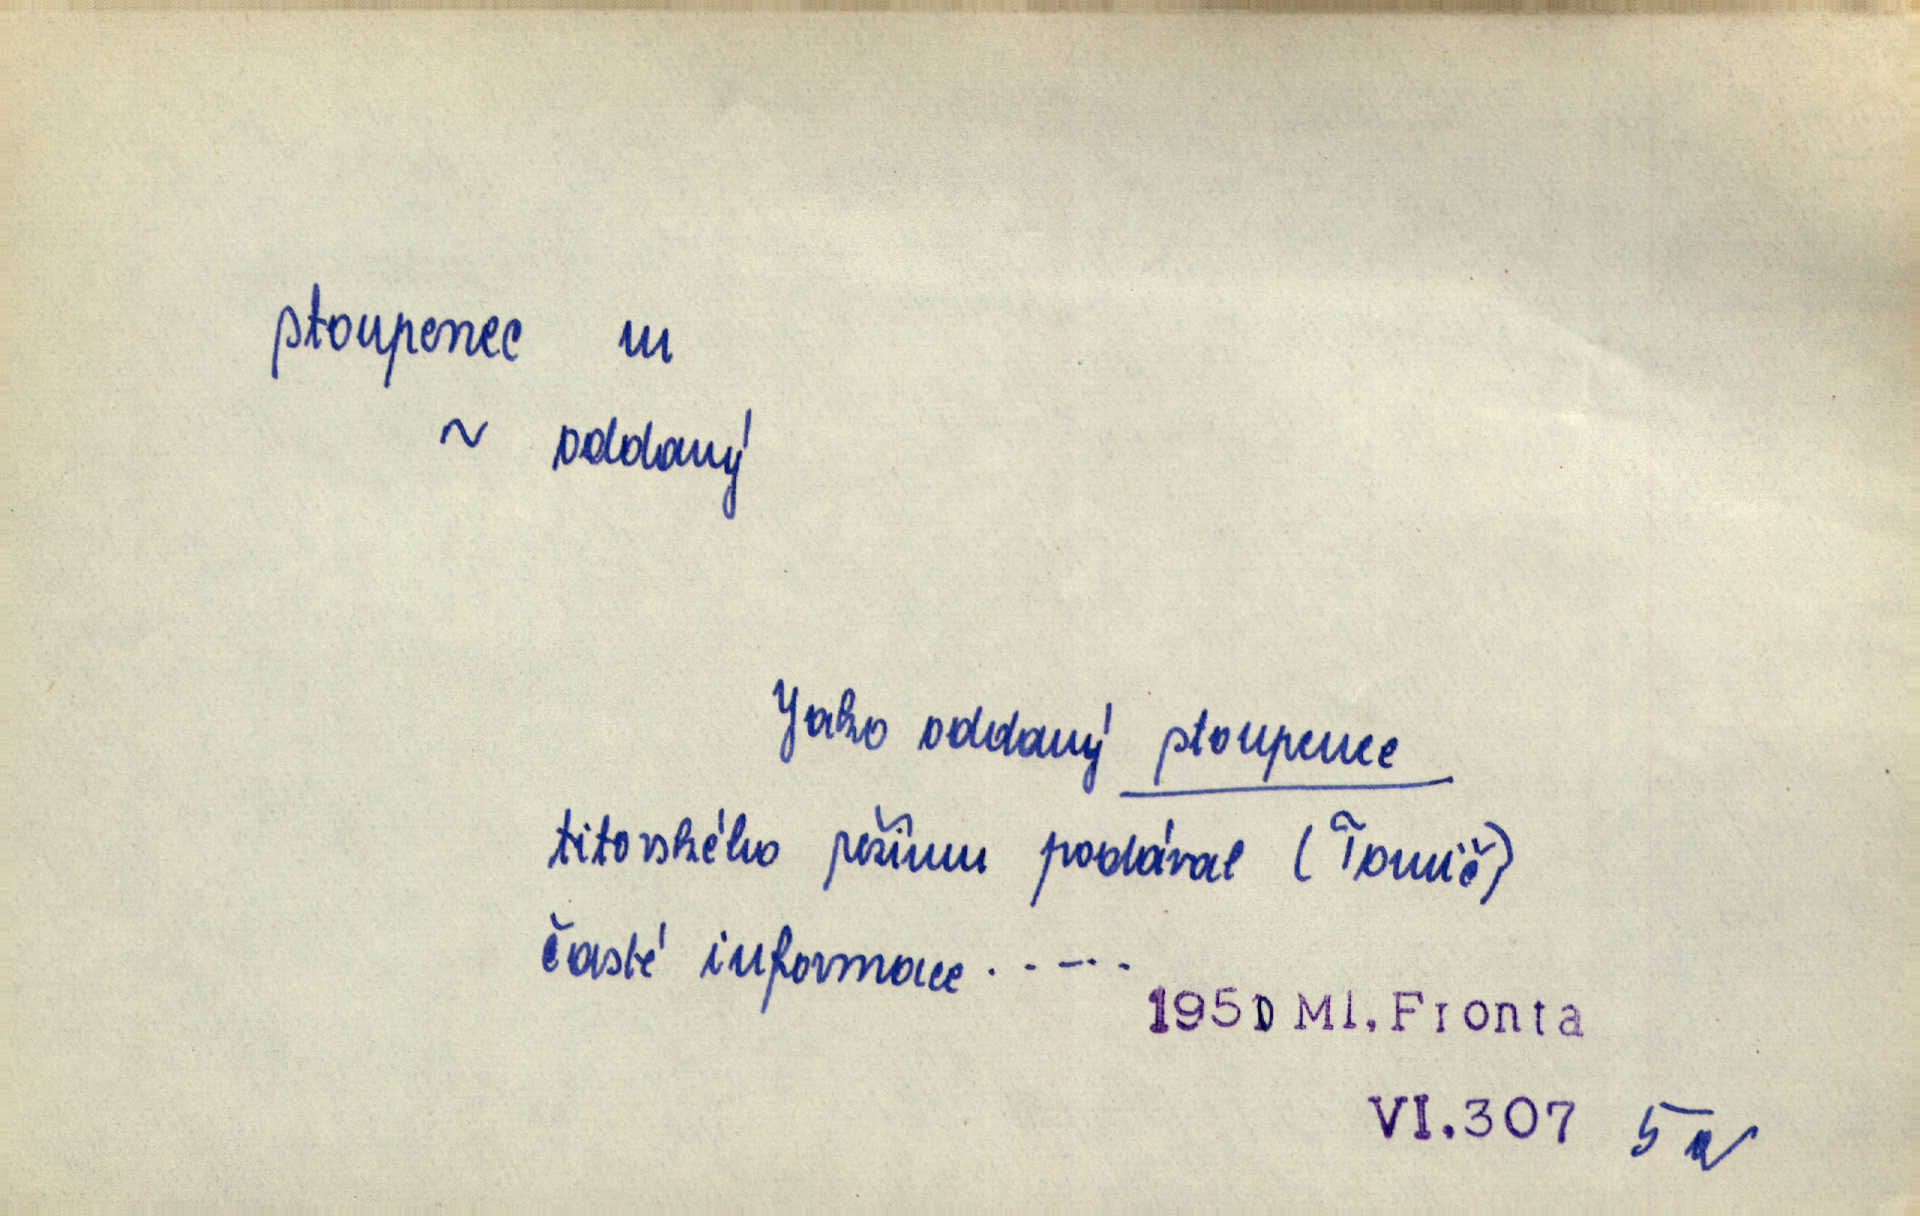 stoupenec m
~ oddaný
Jako oddaný stoupenec
titovského režimu podával (Tomič)
časté informace . . - . .
1950 Ml. Fronta
VI.307 5a